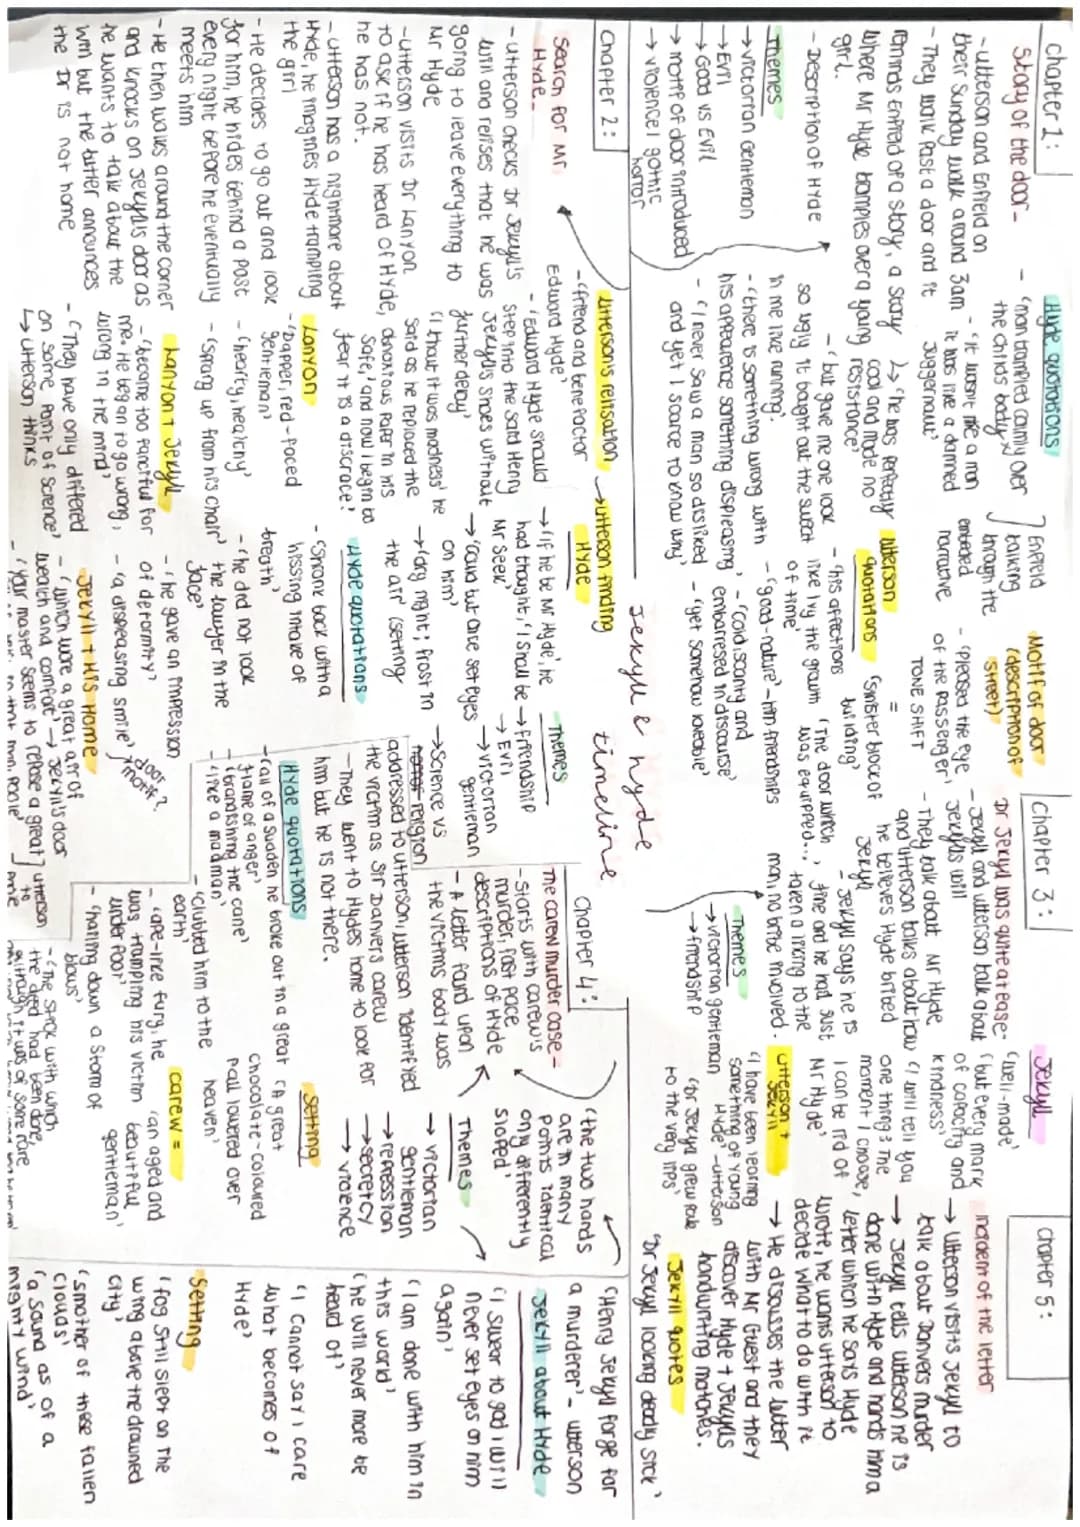 Jekyll & hyde
timeline
Chapter 1:
Story of the door-
- utterson and Enfield on
their Sunday walk around 3am
- They walk past a door and it
reminds Enfield of a story, a story
where Mr Hyde tramples over a young
girl.
- Description of Hyde
Themes
→ victorian Gentleman
→ Evil
→ Good vs Evil
→ motif of door introduced
→ violence / gothic
horror
Hyde quotations
- 'man trampled calmly over
the childs body'
- 'it wasnt like a man
it was like a damned
Juggernaut'
↳ 'he was perfectly
cool and made no
resistance'
- 'but gave me one look
so ugly it bought out the sweat
in me like running'.
- 'there is something wrong with
his appearence something displeasing'
- 'I never saw a man so disliked
and yet I scarce to know why'
] Enfield
talking
through the
embeded
narrative
utterson
quotations
- 'his affections
like ivy the growth
of time'
- 'good-nature' - him friendships
- 'cold, scanty and
embarresed in discourse'
- 'yet somehow loveable'
Motif of door
(description of
street)
- 'pleased the eye
of the passenger'
TONE SHIFT
=
'sinister block of
building'
'The door which
was equipped...'
Chapter 2:
Search for Mr
Hyde-
- utterson checks Dr Jekyll's
will and relises that he was
going to leave everything to
Mr Hyde
- utterson visits Dr Lanyon
to ask if he has heard of Hyde,
he has not.
- utterson has a nightmare about
Hyde, he imagines Hyde trampling
the girl
- He decides to go out and look
for him, he hides behind a post
every night before he eventually
meets him
- He then walks around the corner
and knocks on Jekylls door as
he wants to talk about the
will but the butler announces
the Dr is not home
uttersons relisation
- 'friend and benefactor
Edward Hyde'
- 'Edward Hyde should
step into the said Henry
Jekylls shoes without
further delay'
'I thout it was madness' he
said as he replaced the
obnoxious paper in his
safe, 'and now I begin to
fear it is a disgrace'.
Lanyon
- 'Dapper, red-faced
gentleman'
- 'hearty, healthy'
- 'Sprang up from his chair'
Lanyon + Jekyll
- 'became too fanciful for
me. He began to go wrong,
wrong in the mind'
- 'They have only differed
on some point of science'
↳ utterson thinks
→ utterson finding
Hyde
→ 'if he be Mr Hyde', he
had thought, 'I Shall be
Mr Seek'
→ 'could but once set eyes
on him'
→ 'dry night; frost in
the air' (setting
Hyde quotations
- 'Shrank back with a
hissing intake of
breath'
- 'he did not look
the lawyer in the
face'
- 'he gave an impression
of deformity'
- 'a displeasing smile'
Jekyll + His Home
- 'which wore a great air of
wealth and comfort' → Jekyll's door
door
motif?
- 'your master seems to repose a great
utterson
to
Themes
→ friendship
→ Evil
→ victorian
gentleman
→ Science vs
religion
Chapter 3:
Dr Jekyll was quite at ease-
- Jekyll and utterson talk about
Jekylls will
- They talk about Mr Hyde
and utterson talks about how
he believes Hyde bribed
Jekyll
- Jekyll says he is
fine and he had just
taken a liking to the
man, no bribe involved.
Themes
→ victorian gentleman
→ friendship
Jekyll
'well-made'
'but every mark
of capacity and
kindness'
'I will tell you
one thing: The
moment I choose,
I can be rid of
Mr Hyde'
utterson +
Jekyll
'I have been learning
something of young
Hyde' - utterson
'Dr Jekyll grew pale
to the very lips'
Chapter 4:
The carew murder case-
- Starts with carew's
murder, fast pace
descriptions of Hyde
- A letter found upon
the victims body was
addressed to utterson, utterson identifyed
the victim as Sir Danvers carew
- They went to Hydes home to look for
him but he is not there.
Hyde quotations
- 'all of a sudden he broke out in a great
flame of anger'
- 'brandishing the cane'
- 'like a madman'
- 'clubbed him to the
earth'
- 'ape-like fury, he
was trampling his victim
under foot'
- 'hailing down a storm of
blows'
- 'The stick with which
the deed had been done,
although it was of some rare
Themes
→ victorian
gentleman
→ repression
→ secrecy
→ violence
Setting
'A great
chocolate-coloured
pall lowered over
heaven'
carew =
'an aged and
beautiful
gentleman'
Chapter 5:
incident of the letter
→ utterson visits Jekyll to
talk about Danvers murder
→ Jekyll tells utterson he is
done with Hyde and hands him a
letter which he says Hyde
wrote, he wants utterson to
decide what to do with it
→ He discusses the letter
with Mr Guest and they
discover Hyde + Jekylls
handwriting matches.
Jekyll quotes
'Dr Jekyll looking deadly sick'
'Henry Jekyll forge for
a murderer' - utterson
'the two hands
are in many
points identical
only differently
sloped'
Jekyll about Hyde
'I swear to god I will
never set eyes on him
again'
'I am done with him in
this world'
'he will never more be
heard of'
'I cannot say I care
what becomes of
Hyde'
Setting
'fog still slept on the
wing above the drowned
city'
'smother of these fallen
clouds'
'a sound as of a
mighty wind'